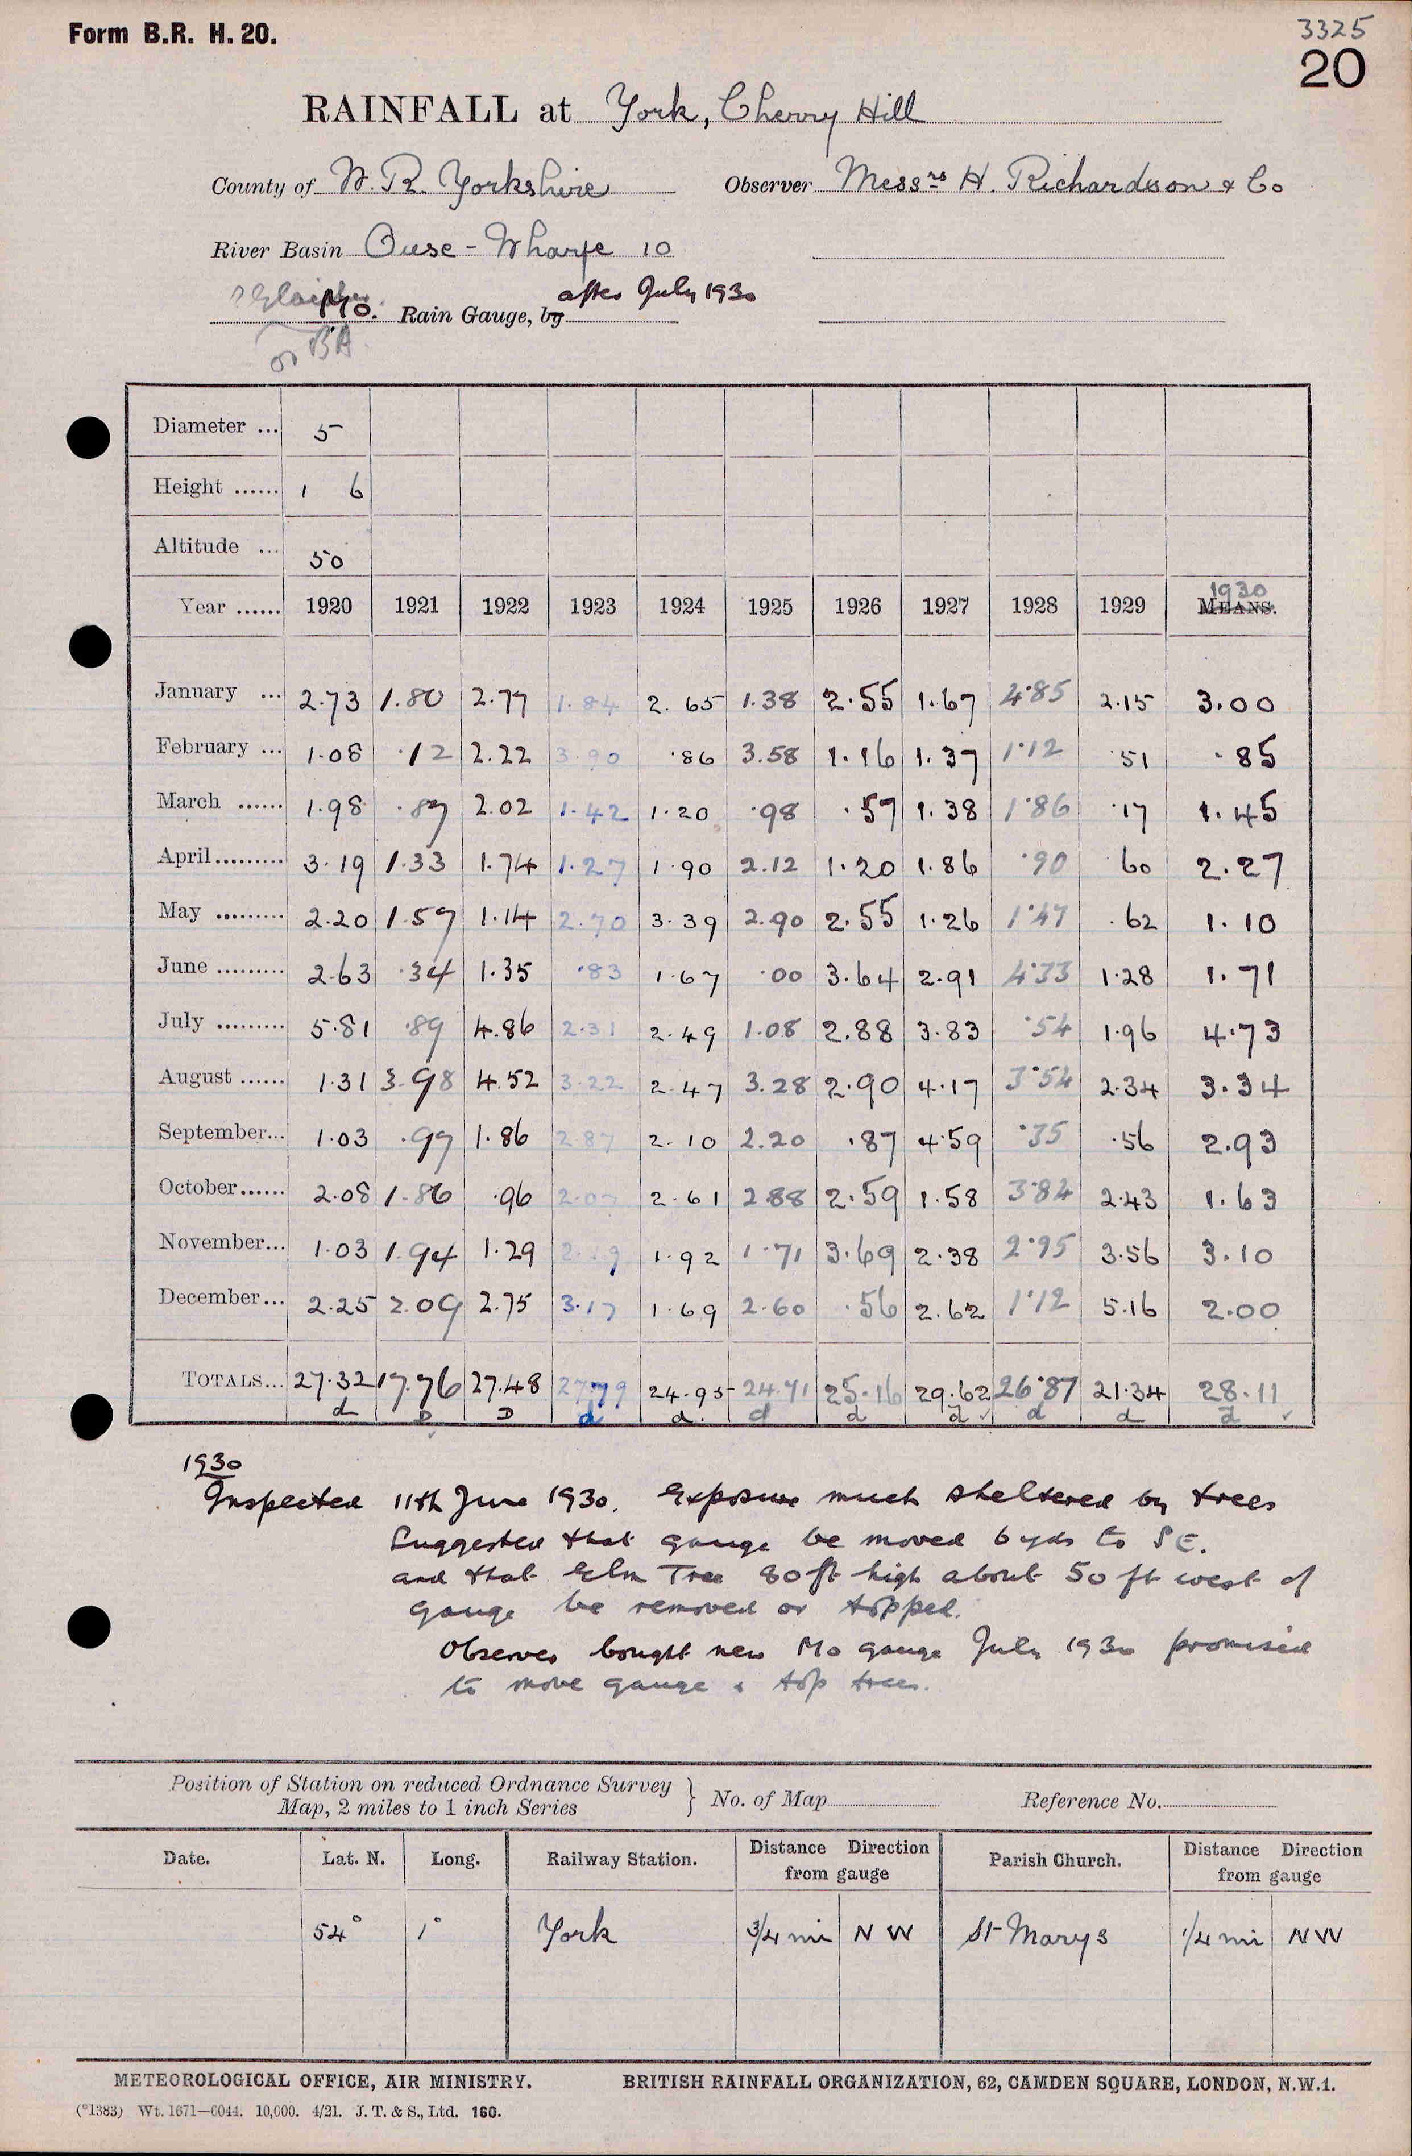 Form B.R. H. 20.
3325
20
RAINFALL at York, Cherry Hill
County of W. R. Yorkshire Observer Messrs H. Richardson & Co
River Basin Ouse - Wharfe 10
? Glaisher. Mo. Rain Gauge, by after July 1930
or BA
Diameter ... 5
Height ...... 1 6
Altitude ... 50
Year ...... 1920 1921 1922 1923 1924 1925 1926 1927 1928 1929 MEANS. 1930
January ... 2.73 1.80 2.77 1.84 2.65 1.38 2.55 1.67 4.85 2.15 3.00
February ... 1.08 .12 2.22 3.90 .86 3.58 1.16 1.37 1.12 .51 .85
March ...... 1.98 .87 2.02 1.42 1.20 .98 .57 1.38 1.86 .17 1.45
April ......... 3.19 1.33 1.74 1.27 1.90 2.12 1.20 1.86 .90 .60 2.27
May ......... 2.20 1.57 1.14 2.70 3.39 2.90 2.55 1.26 1.47 .62 1.10
June ......... 2.63 .34 1.35 .83 1.67 .00 3.64 2.91 4.33 1.28 1.71
July ......... 5.81 .89 4.86 2.31 2.49 1.08 2.88 3.83 .54 1.96 4.73
August ...... 1.31 3.98 4.52 3.22 2.47 3.28 2.90 4.17 3.54 2.34 3.34
September... 1.03 .97 1.86 2.87 2.10 2.20 .87 4.59 .35 .56 2.93
October...... 2.08 1.86 .96 2.07 2.61 2.88 2.59 1.58 3.84 2.43 1.63
November... 1.03 1.94 1.29 2.19 1.92 1.71 3.69 2.38 2.95 3.56 3.10
December... 2.25 2.09 2.75 3.17 1.69 2.60 .56 2.62 1.12 5.16 2.00
TOTALS... 27.32 17.76 27.48 27.79 24.95 24.71 25.16 29.62 26.87 21.34 28.11
d D D d d. d d d ✓ d d d ✓
1930
Inspected 11th June 1930. Exposure much sheltered by trees
Suggested that gauge be moved 6 yds to SE.
and that Elm Tree 80 ft high about 50 ft west of
gauge be removed or topped.
Observer bought new Mo gauge July 1930 promised
to move gauge & top trees.
Position of Station on reduced Ordnance Survey
Map, 2 miles to 1 inch Series } No. of Map Reference No.
Date. Lat. N. Long. Railway Station. Distance Direction from gauge Parish Church. Distance Direction from gauge
54° 1° York 3/4 mi N W St Marys 1/4 mi N W
METEOROLOGICAL OFFICE, AIR MINISTRY. BRITISH RAINFALL ORGANIZATION, 62, CAMDEN SQUARE, LONDON, N.W.1.
(*1383) Wt. 1671—6044. 10,000. 4/21. J. T. & S., Ltd. 160.